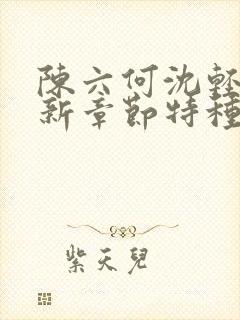 陳六何沈輕
新章節特種
紫天兒